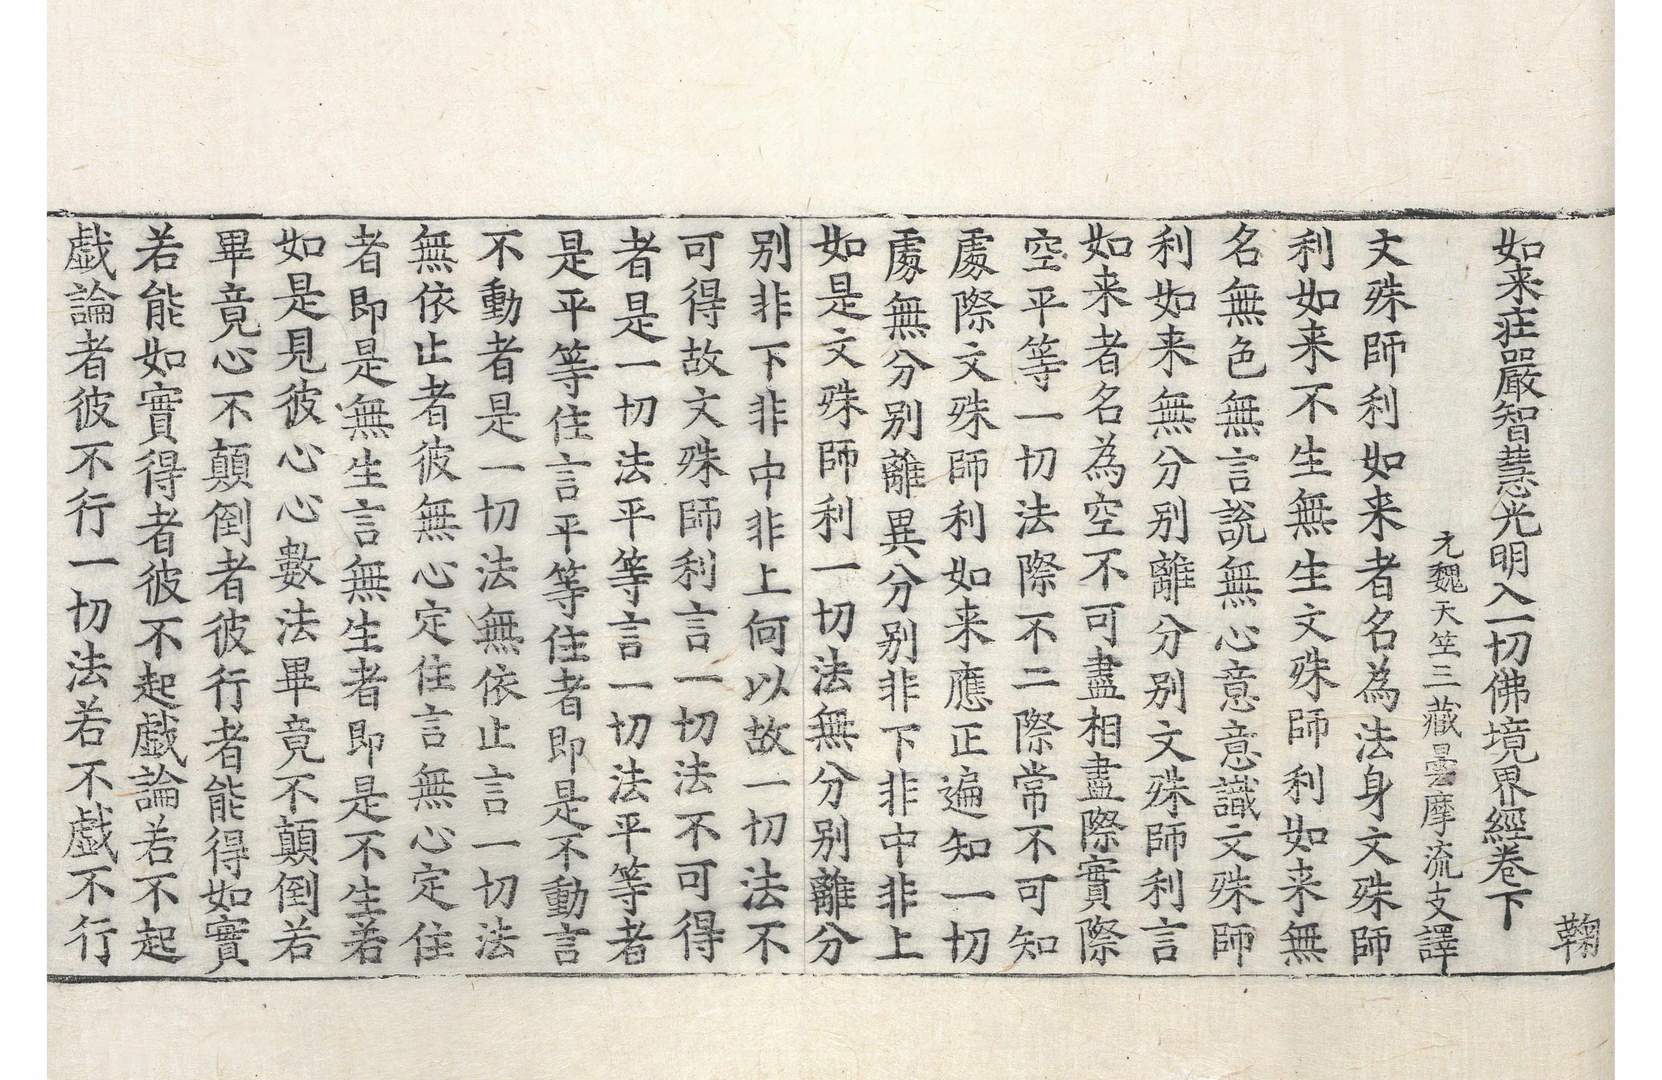 鞠
如来莊嚴智慧光明入一切佛境界經卷下
元魏天竺三藏曇摩流支譯
文殊師利如来者名為法身文殊師
利如来不生無生文殊師利如来無
名無色無言說無心意意識文殊師
利如来無分别離分别文殊師利言
如来者名為空不可盡相盡際實際
空平等一切法際不二際常不可知
處際文殊師利如来應正遍知一切
處無分别離異分别非下非中非上
如是文殊師利一切法無分别離分
别非下非中非上何以故一切法不
可得故文殊師利言一切法不可得
者是一切法平等言一切法平等者
是平等住言平等住者即是不動言
不動者是一切法無依止言一切法
無依止者彼無心定住言無心定住
者即是無生言無生者即是不生若
如是見彼心心數法畢竟不顛倒若
畢竟心不顛倒者彼行者能得如實
若能如實得者彼不起戲論若不起
戲論者彼不行一切法若不戲不行